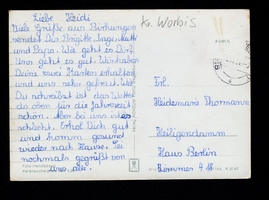 Kr. Worbis
Liebe Heidi
Viele Grüße aus Birkungen
sendet Dir Brigitte, Ing.
und Papa. Wie geht es Dir?
Uns geht es gut. Wir haben
Deine Karten erhalten
und uns sehr gefreut. Wie
Du schreibst ist das Wetter
da oben für die Jahreszeit
schön. Aber bei uns ist es
schlecht. Erhol Dich gut
und komm gesund
wieder nach Hause. Sei
nochmals gegrüßt von
uns.
Frl.
Heidemarie Thormann
Heiligendamm
Haus Berlin
Zimmer